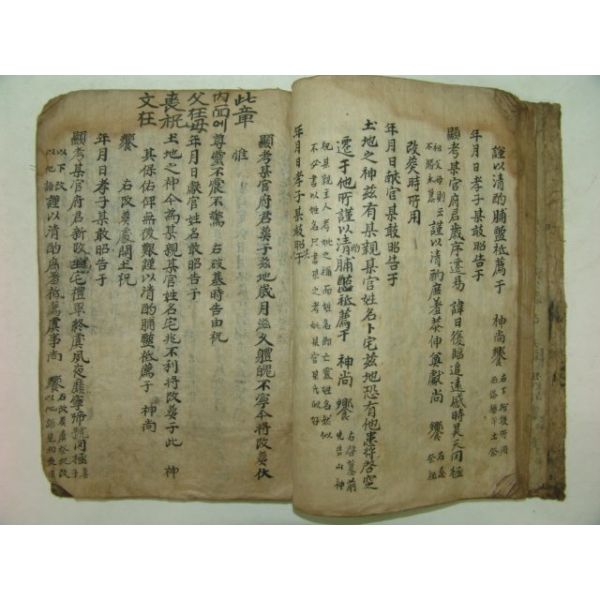 謹以清酌脯醢祗薦于　神尚饗
年月日孝子某敢昭告于
顯考某官府君歲序遷易　諱日復臨追遠感時昊天罔極
謹以清酌庶羞恭伸奠獻尚　饗
改葬時所用
年月日獻官某敢昭告于
土地之神茲有某親某官姓名卜宅茲地恐有他患將啓窆
遷于他所謹以清酌脯醢祗薦于　神尚　饗
年月日孝子某敢昭于
顯考某官府君葬于茲地歲月滋久體魄不寧今將改葬伏
惟
尊靈不震不驚　右改墓時告由祝
年月日獻官姓名敢昭告于
土地之神今為某親某官姓名宅兆不利將改葬于此　神
其保佑俾無後艱謹以清酌脯醢祗薦于　神尚
饗
年月日孝子某敢昭告于
顯考某官府君新改幽宅禮畢終虞夙夜靡寧啼號罔極
謹以清酌庶羞祗薦虞事尚　饗
此章
內面에
父在母
喪祝
文在